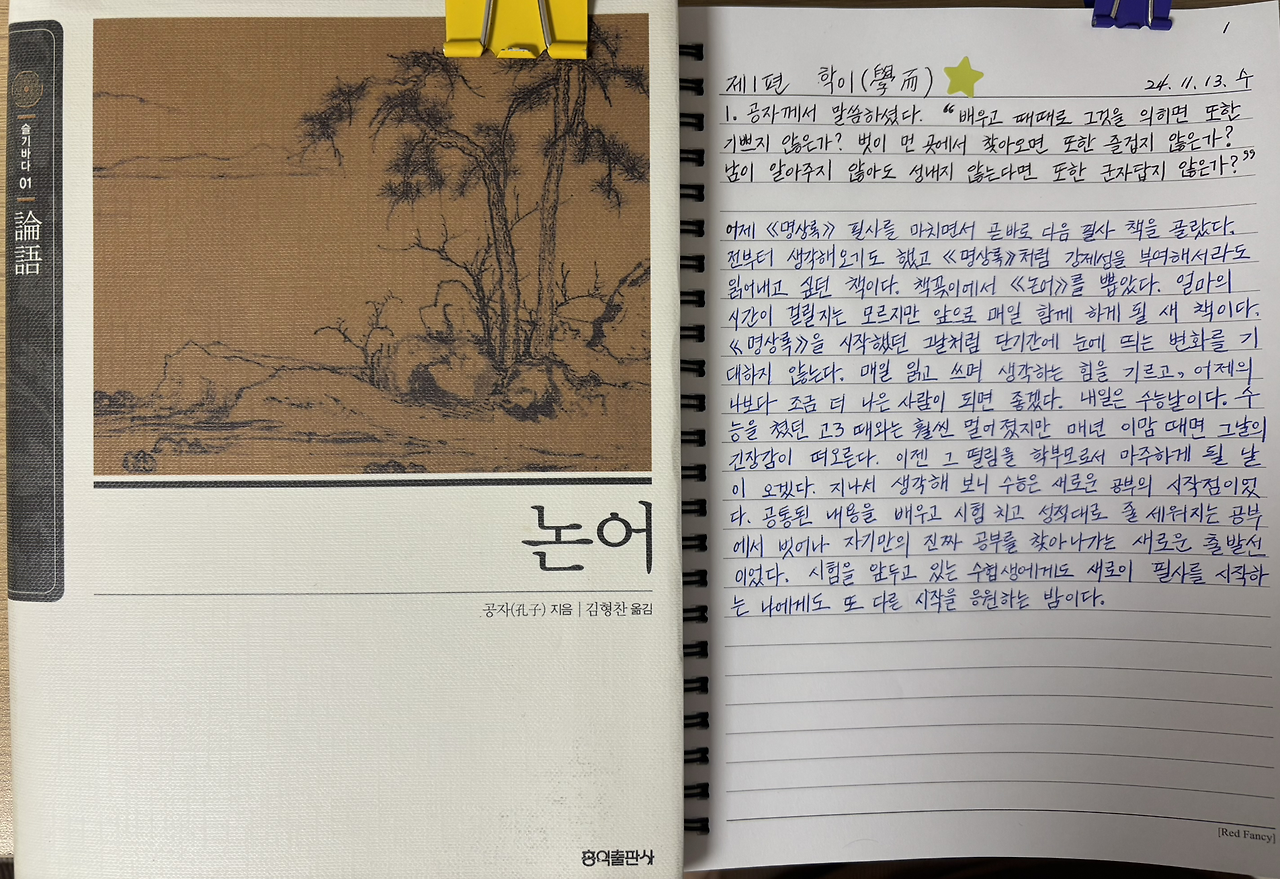 슬기바다 01
論語
논어
공자(孔子) 지음 | 김형찬 옮김
홍익출판사
1
제1편 학이(學而) 24. 11. 13. 수
1. 공자께서 말씀하셨다. “배우고 때때로 그것을 익히면 또한
기쁘지 않은가? 벗이 먼 곳에서 찾아오면 또한 즐겁지 않은가?
남이 알아주지 않아도 성내지 않는다면 또한 군자답지 않은가?”
어제 《명상록》 필사를 마치면서 곧바로 다음 필사 책을 골랐다.
전부터 생각해오기도 했고 《명상록》처럼 강제성을 부여해서라도
읽어내고 싶던 책이다. 책꽂이에서 《논어》를 뽑았다. 얼마의
시간이 걸릴지는 모르지만 앞으로 매일 함께 하게 될 새 책이다.
《명상록》을 시작했던 그날처럼 단기간에 눈에 띄는 변화를 기
대하지 않는다. 매일 읽고 쓰며 생각하는 힘을 기르고, 어제의
나보다 조금 더 나은 사람이 되면 좋겠다. 내일은 수능날이다. 수
능을 쳤던 고3 때와는 훨씬 멀어졌지만 매년 이맘 때면 그날의
긴장감이 떠오른다. 이젠 그 떨림을 학부모로서 마주하게 될 날
이 오겠다. 지나서 생각해 보니 수능은 새로운 공부의 시작점이었
다. 공통된 내용을 배우고 시험 치고 성적대로 줄 세워지는 공부
에서 벗어나 자기만의 진짜 공부를 찾아나가는 새로운 출발선
이었다. 시험을 앞두고 있는 수험생에게도 새로이 필사를 시작하
는 나에게도 또 다른 시작을 응원하는 밤이다.
[Red Fancy]